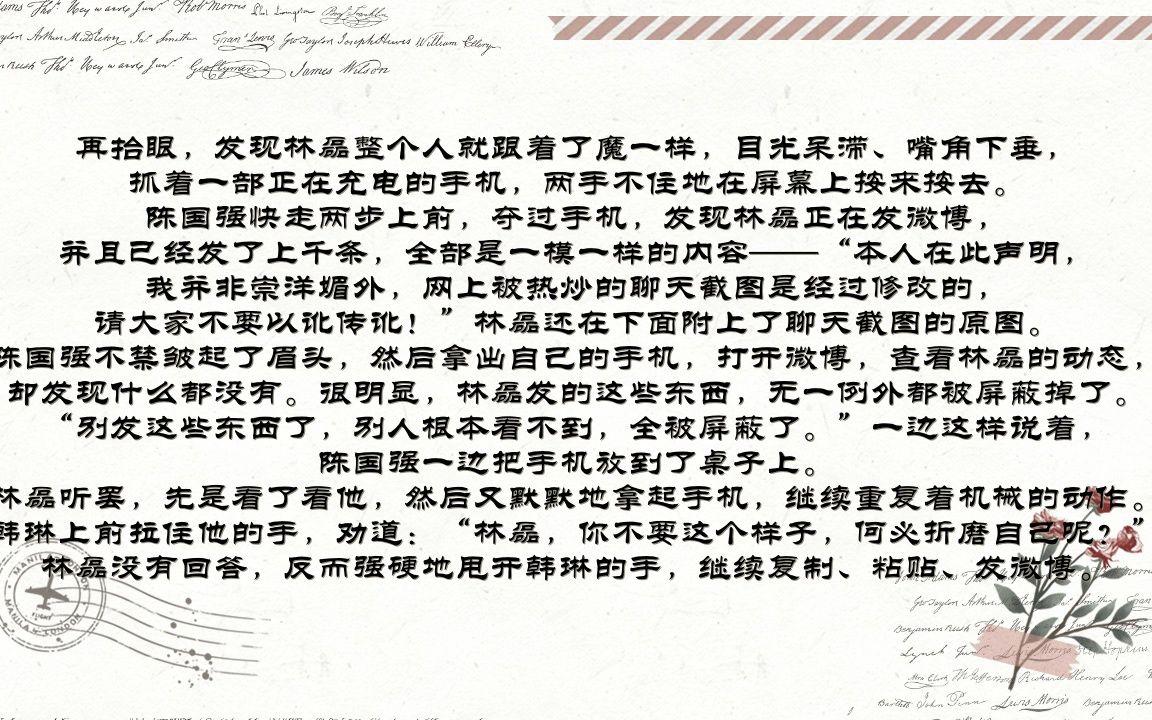 Thos. Heyward Junr. Rob Morris Phil. Livingston Benj. Franklin
Geo Taylor Arthur Middleton Jas. Smith Fran. Lewis Geo Taylor Joseph Hewes William Ellery
Rush Thos. Heyward Junr. Geo Clymer James Wilson
再抬眼，发现林磊整个人就跟着了魔一样，目光呆滞、嘴角下垂，
抓着一部正在充电的手机，两手不住地在屏幕上按来按去。
陈国强快走两步上前，夺过手机，发现林磊正在发微博，
并且已经发了上千条，全部是一模一样的内容——“本人在此声明，
我并非崇洋媚外，网上被热炒的聊天截图是经过修改的，
请大家不要以讹传讹！”林磊还在下面附上了聊天截图的原图。
陈国强不禁皱起了眉头，然后拿出自己的手机，打开微博，查看林磊的动态，
却发现什么都没有。很明显，林磊发的这些东西，无一例外都被屏蔽掉了。
“别发这些东西了，别人根本看不到，全被屏蔽了。”一边这样说着，
陈国强一边把手机放到了桌子上。
林磊听罢，先是看了看他，然后又默默地拿起手机，继续重复着机械的动作。
韩琳上前拉住他的手，劝道：“林磊，你不要这个样子，何必折磨自己呢？”
林磊没有回答，反而强硬地甩开韩琳的手，继续复制、粘贴、发微博。
MANILA & LONDON
Geo Taylor
Benjamin Rush Thos. Heyward Junr.
Lynch Junr. Lewis Morris Step Hopkins
Richard Henry Lee
John Penn Lewis Morris Benjamin Rush